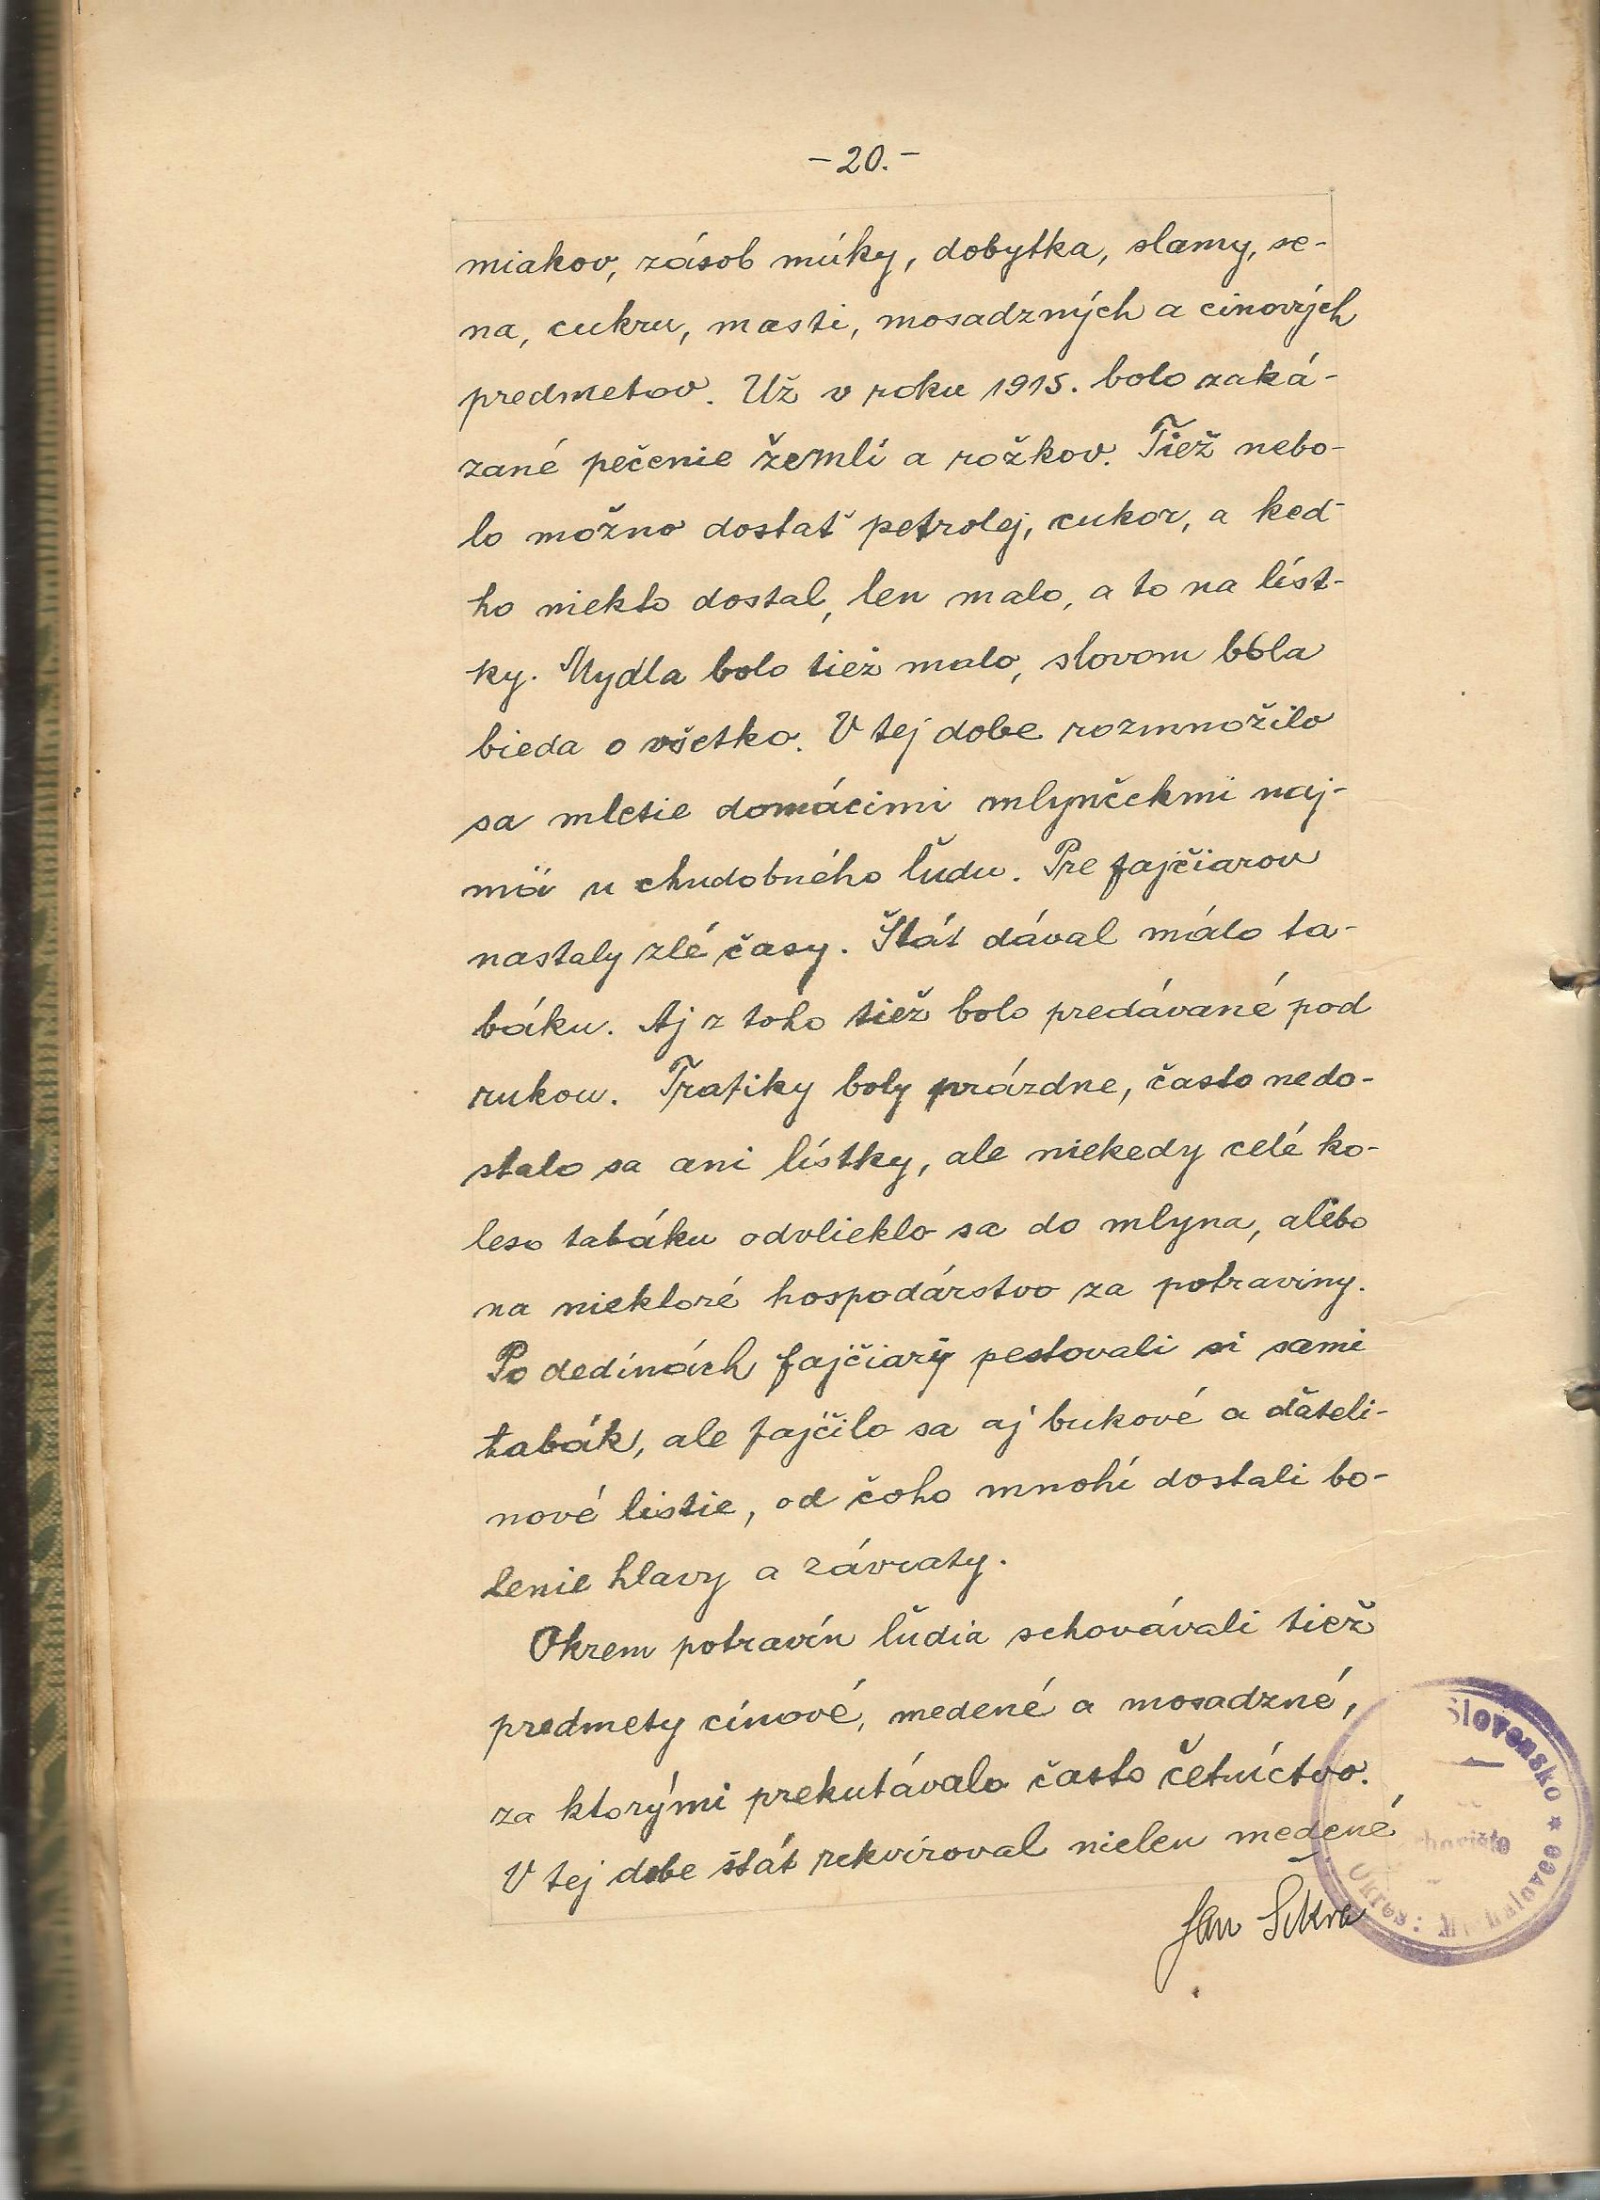 -20.-
miakov, zásob múky, dobytka, slamy, se-
na, cukru, masti, mosadzných a cinových
predmetov. Už v roku 1915. bolo zaká-
zané pečenie žemlí a rožkov. Tiež nebo-
lo možno dostať petrolej, cukor, a keď
ho niekto dostal, len malo, a to na líst-
ky. Mydla bolo tiež malo, slovom bola
bieda o všetko. V tej dobe rozmnožilo
sa mletie domácimi mlynčekmi naj-
mä u chudobného ľudu. Pre fajčiarov
nastaly zlé časy. Štát dával málo ta-
báku. Aj z toho tiež bolo predávané pod
rukou. Trafiky boly prázdne, často nedo-
stalo sa ani lístky, ale niekedy celé ko-
leso tabáku odvlieklo sa do mlyna, alebo
na niektoré hospodárstvo za potraviny.
Po dedinách fajčiary pestovali si sami
tabák, ale fajčilo sa aj bukové a ďateli-
nové listie, od čoho mnohí dostali bo-
lenie hlavy a závraty.
Okrem potravín ľudia schovávali tiež
predmety cínové, medené a mosadzné,
za ktorými prekutávalo často četníctvo.
V tej dobe štát rekviroval nielen medené
Ján
Slovensko *
Okres: Michalovce